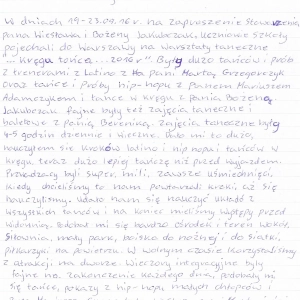 W dniach 19-23.09.16r. na zaproszenie Stowarzyszenia
pana Wiesława i Bożeny Jakubczak, Uczniowie Szkoły
pojechali do Warszawy na warsztaty taneczne
"Kręgu tańca... 2016r" Było dużo tańców, prób
z trenerami z Latino z Pani Martą Grzegorczyk
oraz tańce i próby hip-hopu z Panem Mariuszem
Adamczykiem i tańce w kręgu z Panią Bożeną
Jakubczak. Fajne były też zajęcia taneczne i
baletowe z panią Bereniką. Zajęcia taneczne były
4-5 godzin dziennie i wieczne. Dało mi to dużo,
nauczyłem się kroków latino i hip hopu i tańców w
kręgu teraz dużo lepiej tańczę niż przed wyjazdem.
Prowadzący byli super, mili, zawsze uśmiechnięci.
Kiedy chcieliśmy to nam powtarzali kroki, aż się
nauczyliśmy. Udało nam się nauczyć układ z
wszystkich tańców i na koniec mieliśmy występy przed
widownią. Podobał mi się bardzo ośrodek i teren wokół.
Siłownia, mały park, boisko do nożnej i do siatki,
piłkarzyki na powietrzu. W wolnym czasie korzystaliśmy
z atrakcji na dworze. Wieczory integracyjne były
fajne na zakończenie każdego dnia, podobały mi
się tańce, pokazy z hip-hopu małych chłopców i